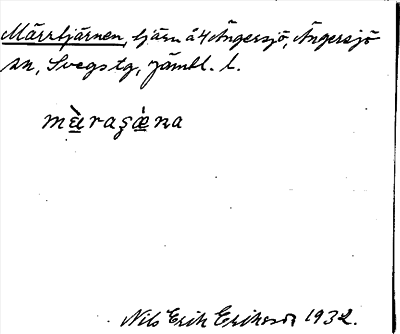 Märrtjärnen, tjärn å 4 Ängersjö, Ängersjö
sn, Svegs tg, Jämtl. l.
mæ̀raʂǽna
Nils Erik Eriksson 1932.